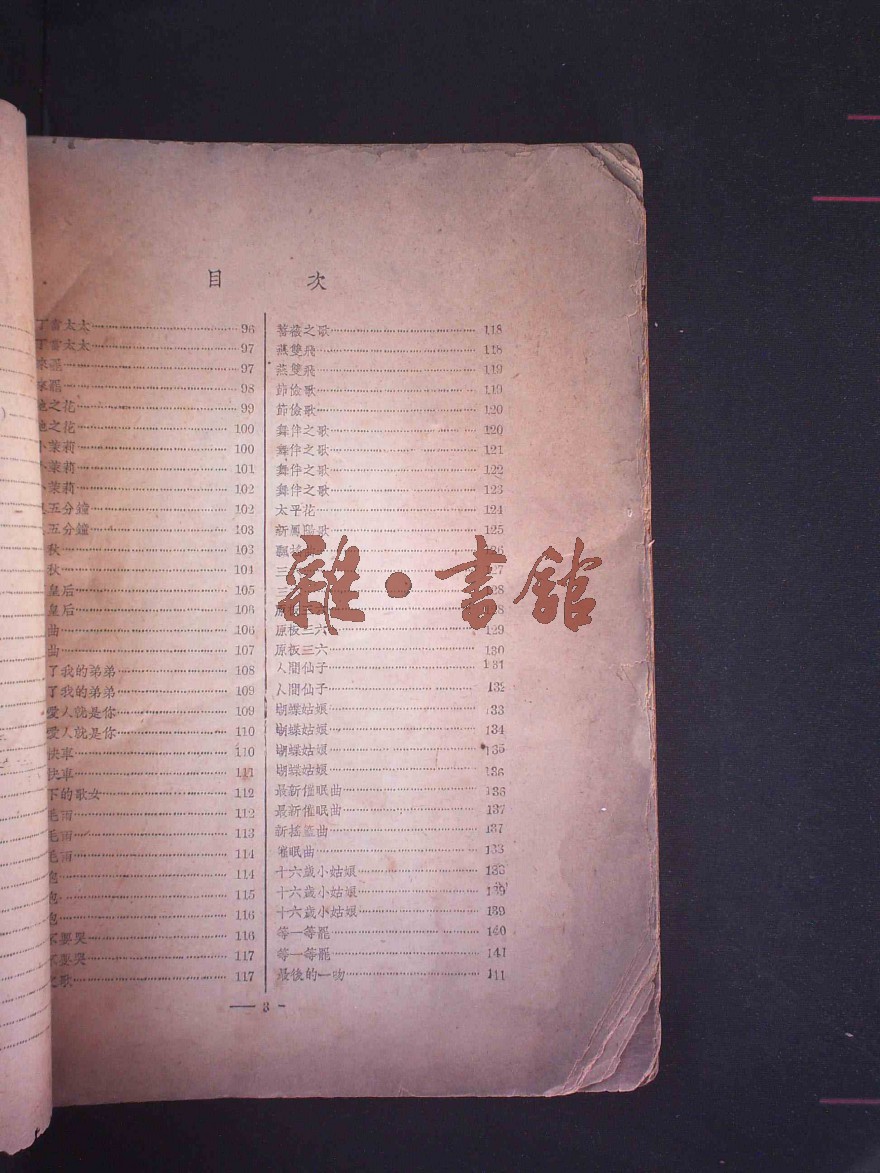 目 次
丁當太太 96
丁當太太 97
來罷 97
來罷 98
之花 99
之花 100
小茉莉 100
小茉莉 101
小茉莉 102
五分鐘 102
五分鐘 103
秋 103
秋 104
皇后 105
皇后 106
曲 106
曲 107
了我的弟弟 108
了我的弟弟 109
愛人就是你 109
愛人就是你 110
快車 110
快車 111
下的歌女 112
毛雨 112
毛雨 113
毛雨 114
114
115
116
不要哭 116
不要哭 117
之歌 117
薔薇之歌 118
燕雙飛 118
燕雙飛 119
節儉歌 119
節儉歌 120
舞伴之歌 120
舞伴之歌 121
舞伴之歌 122
舞伴之歌 123
太平花 124
新鳳陽歌 125
三 127
三 128
原板三六
原板三六 129
原板三六 130
人間仙子 131
人間仙子 132
蝴蝶姑娘 133
蝴蝶姑娘 134
蝴蝶姑娘 135
蝴蝶姑娘 136
最新催眠曲 136
最新催眠曲 137
新搖籃曲 137
催眠曲 133
十六歲小姑娘 138
十六歲小姑娘 139
十六歲小姑娘 139
等一等罷 140
等一等罷 141
最後的一吻 141
— 3 -
雜·書館